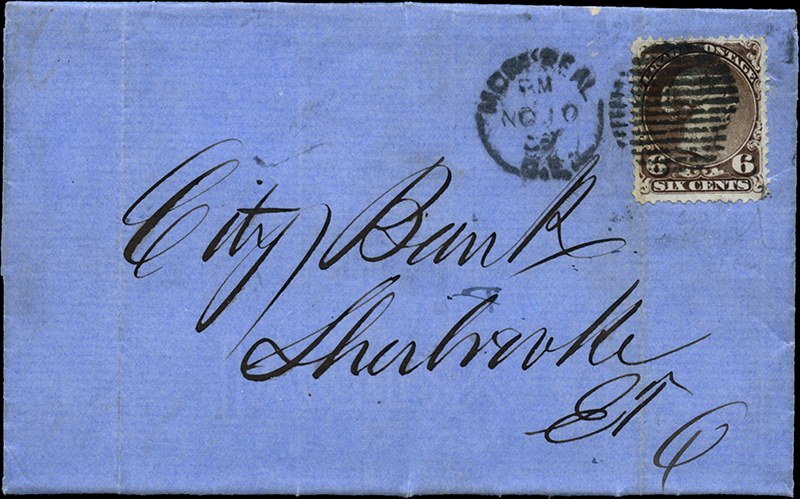 MONTREAL
PM
NO 10
POSTAGE
6 6
SIX CENTS
City Bank
Sherbrooke
ET
6